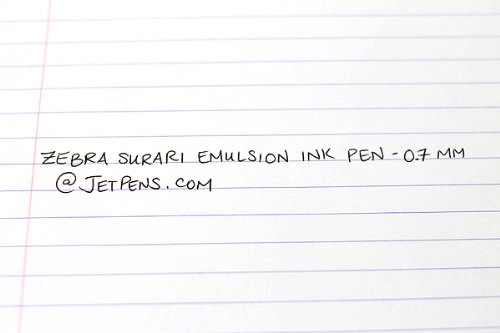 ZEBRA SURARI EMULSION INK PEN - 0.7 MM
@ JETPENS.COM